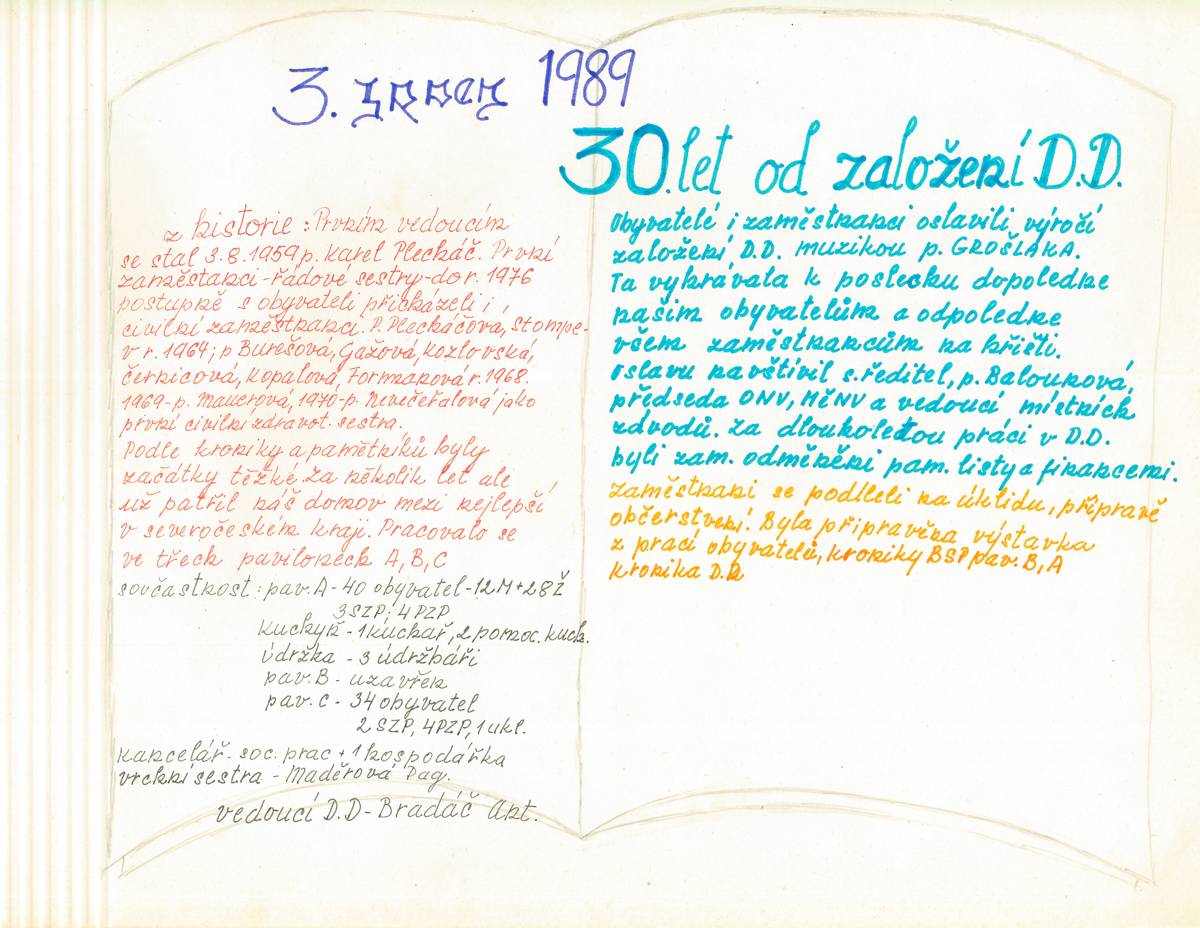 3. srpen 1989
30. let od založení D.D.
z historie: Prvním vedoucím
se stal 3.8.1959 p. Karel Plecháč. První
zaměstanci - řádové sestry - do r. 1976
postupně s obyvateli přicházeli i
civilní zaměstnanci. P. Plecháčova, Stompe-
v r. 1964; p Burešová, Gažová, Kozlovská,
černicová, Kopalová, Formánková r. 1968.
1969 - p. Mauerová, 1970 - p. Nevečeřalová jako
první civilní zdravot. sestra.
Podle kroniky a pamětníků byly
začátky těžké. Za několik let ale
už patřil náš domov mezi nejlepší
v severočeském kraji. Pracovalo se
ve třech pavilonech A, B, C
součastnost: pav. A - 40 obyvatel - 12 M + 28 Ž
3 SZP; 4 PZP
Kuchyň - 1 kuchař, 2 pomoc. kuch.
údržba - 3 údržbáři
pav. B - uzavřen
pav. C - 34 obyvatel
2 SZP, 4 PZP, 1 ukl.
kancelář - soc. prac + 1 hospodářka
vrchní sestra - Maděrová Dag.
vedoucí D.D - Bradáč Ant.
Obyvatelé i zaměstnanci oslavili výročí
založení D.D. muzikou p. GROŠLAKA.
Ta vyhrávala k poslechu dopoledne
našim obyvatelům a odpoledne
všem zaměstnancům na hřišti.
Oslavu navštívil s. ředitel, p. Balounová,
předseda ONV, MěNV a vedoucí místních
závodů. Za dlouholetou práci v D.D.
byli zam. odměněni pam. listy a financemi.
Zaměstnani se podíleli na úklidu, přípravě
občerstvení. Byla připravěna výstavka
z prací obyvatelů, kroniky BSP pav. B, A
kronika D.D